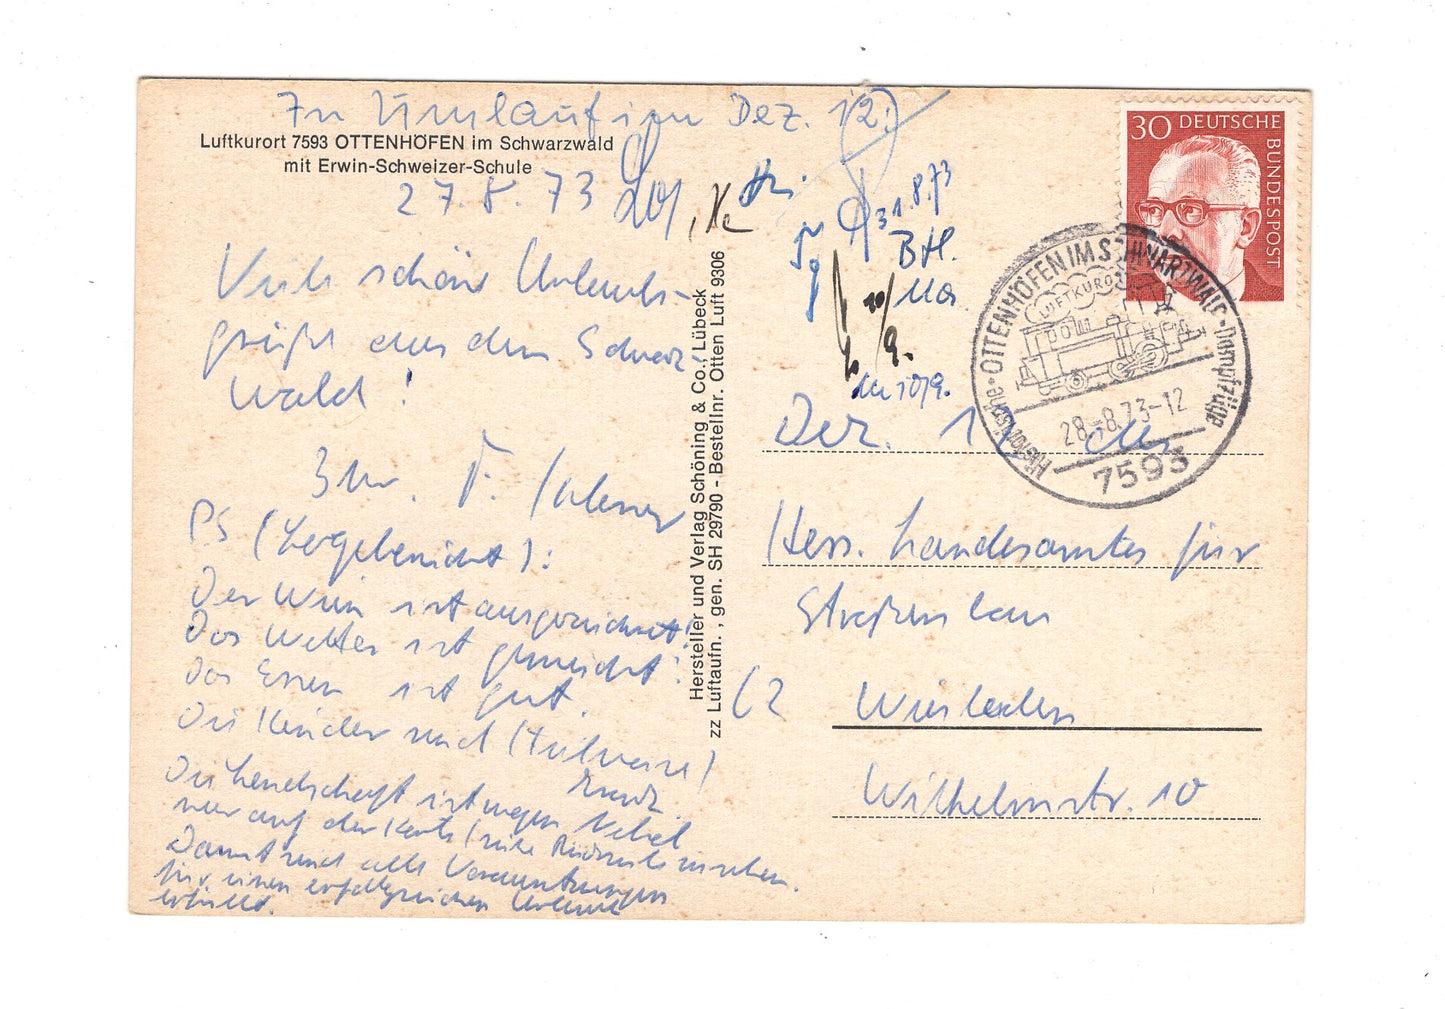 In Umlauf im Dez. 12.
Luftkurort 7593 OTTENHÖFEN im Schwarzwald
mit Erwin-Schweizer-Schule
27.8.73
31.8.73
BH.
10/9.
10/9.
Viele schöne Urlaubs-
grüße aus dem Schwarz-
wald!
Ihr F.
PS (Lagebericht):
Der Wein ist ausgezeichnet!
Das Wetter ist gemischt!
Das Essen ist gut.
Die Kinder sind (teilweise)
Die Landschaft ist wegen Nebel
nur auf der Karte (siehe Rückseite) zu sehen.
Damit sind alle Voraussetzungen
für einen erfolgreichen Urlaub
erfüllt.
Hersteller und Verlag Schöning & Co., Lübeck
zz Luftaufn. , gen. SH 29790 - Bestellnr. Otten Luft 9306
30 DEUTSCHE
BUNDESPOST
OTTENHÖFEN IM SCHWARZWALD · Dampfzüge · Historische
LUFTKURORT
28.-8.73-12
7593
Dez. 12 des
Hess. Landesamtes für
Straßenbau
62 Wiesbaden
Wilhelmstr. 10